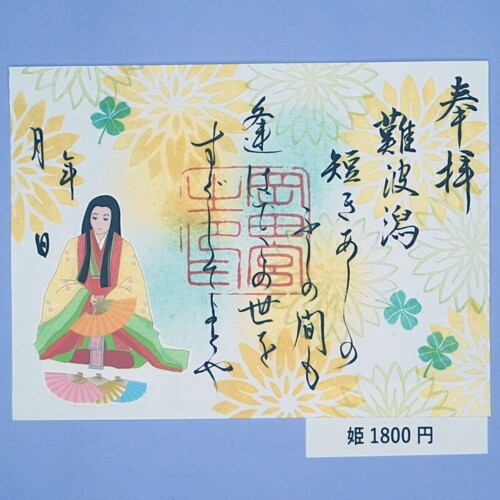 奉拝
難波潟
短きあしの
ふしの間も
逢はでこの世を
すぐしてよとや
年
月 日
姫1800円